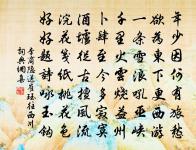 年少因何有旅愁
欲為東下更西遊
一條雪浪吼巫峽
千里火雲燒益州
卜肆至今多寂寞
酒壚從古擅風流
浣花箋紙桃花色
好好題詩詠玉鉤
李商隱送崔珏往西川
詞典網集